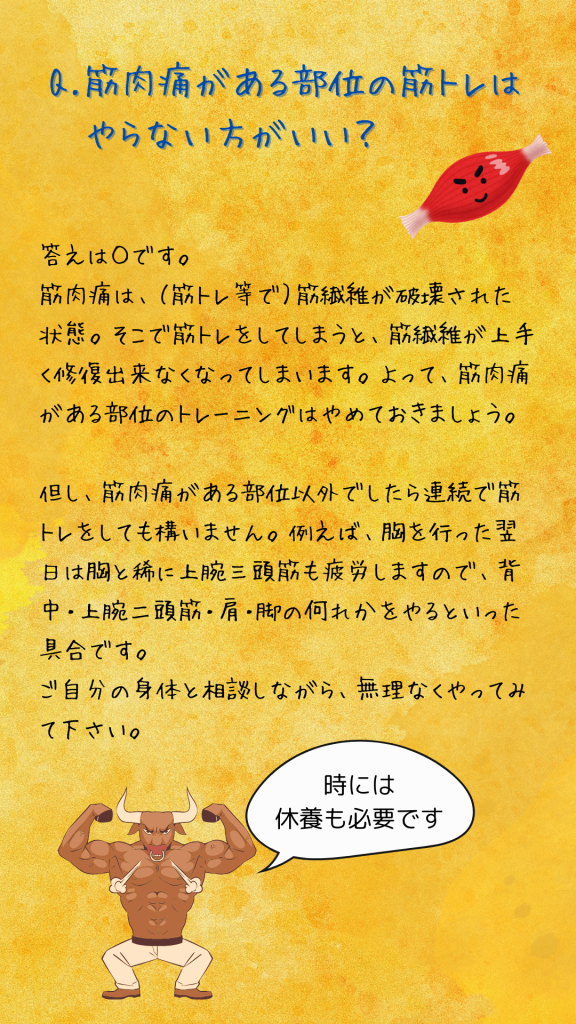 Q.筋肉痛がある部位の筋トレは
やらない方がいい?
答えは〇です。
筋肉痛は、(筋トレ等で)筋繊維が破壊された
状態。そこで筋トレをしてしまうと、筋繊維が上手
く修復出来なくなってしまいます。よって、筋肉痛
がある部位のトレーニングはやめておきましょう。
但し、筋肉痛がある部位以外でしたら連続で筋
トレをしても構いません。例えば、胸を行った翌
日は胸と稀に上腕三頭筋も疲労しますので、背
中・上腕二頭筋・肩・脚の何れかをやるといった
具合です。
ご自分の身体と相談しながら、無理なくやってみ
て下さい。
時には
休養も必要です